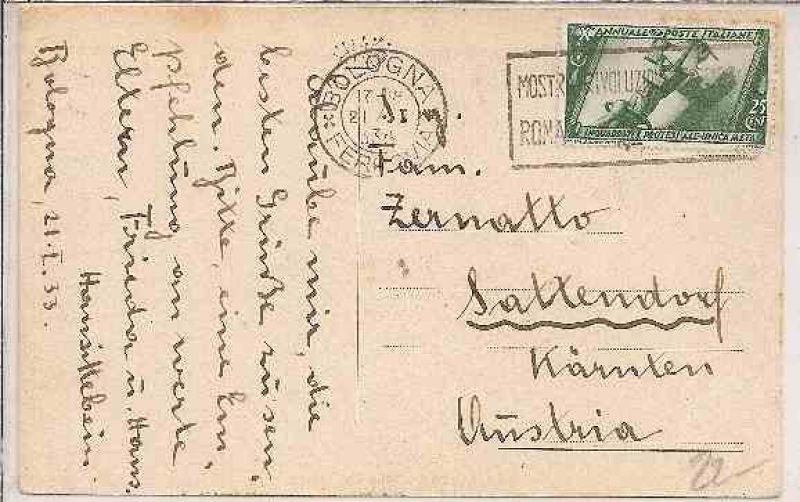 Erlaube mir, die
besten Grüße zu sen-
den. Bitte, eine Em-
pfehlung an werte
Eltern, Frieda u. Hans.
Bologna, 21.I.33.
BOLOGNA
FERROVIA
MOSTRA RIVOLUZION
ROMA
X ANNUALE POSTE ITALIANE
25 CENT
INQUADRATI E PROTESI ALL'UNICA META
Fam.
Zernatto
Sattendorf
Kärnten
Austria